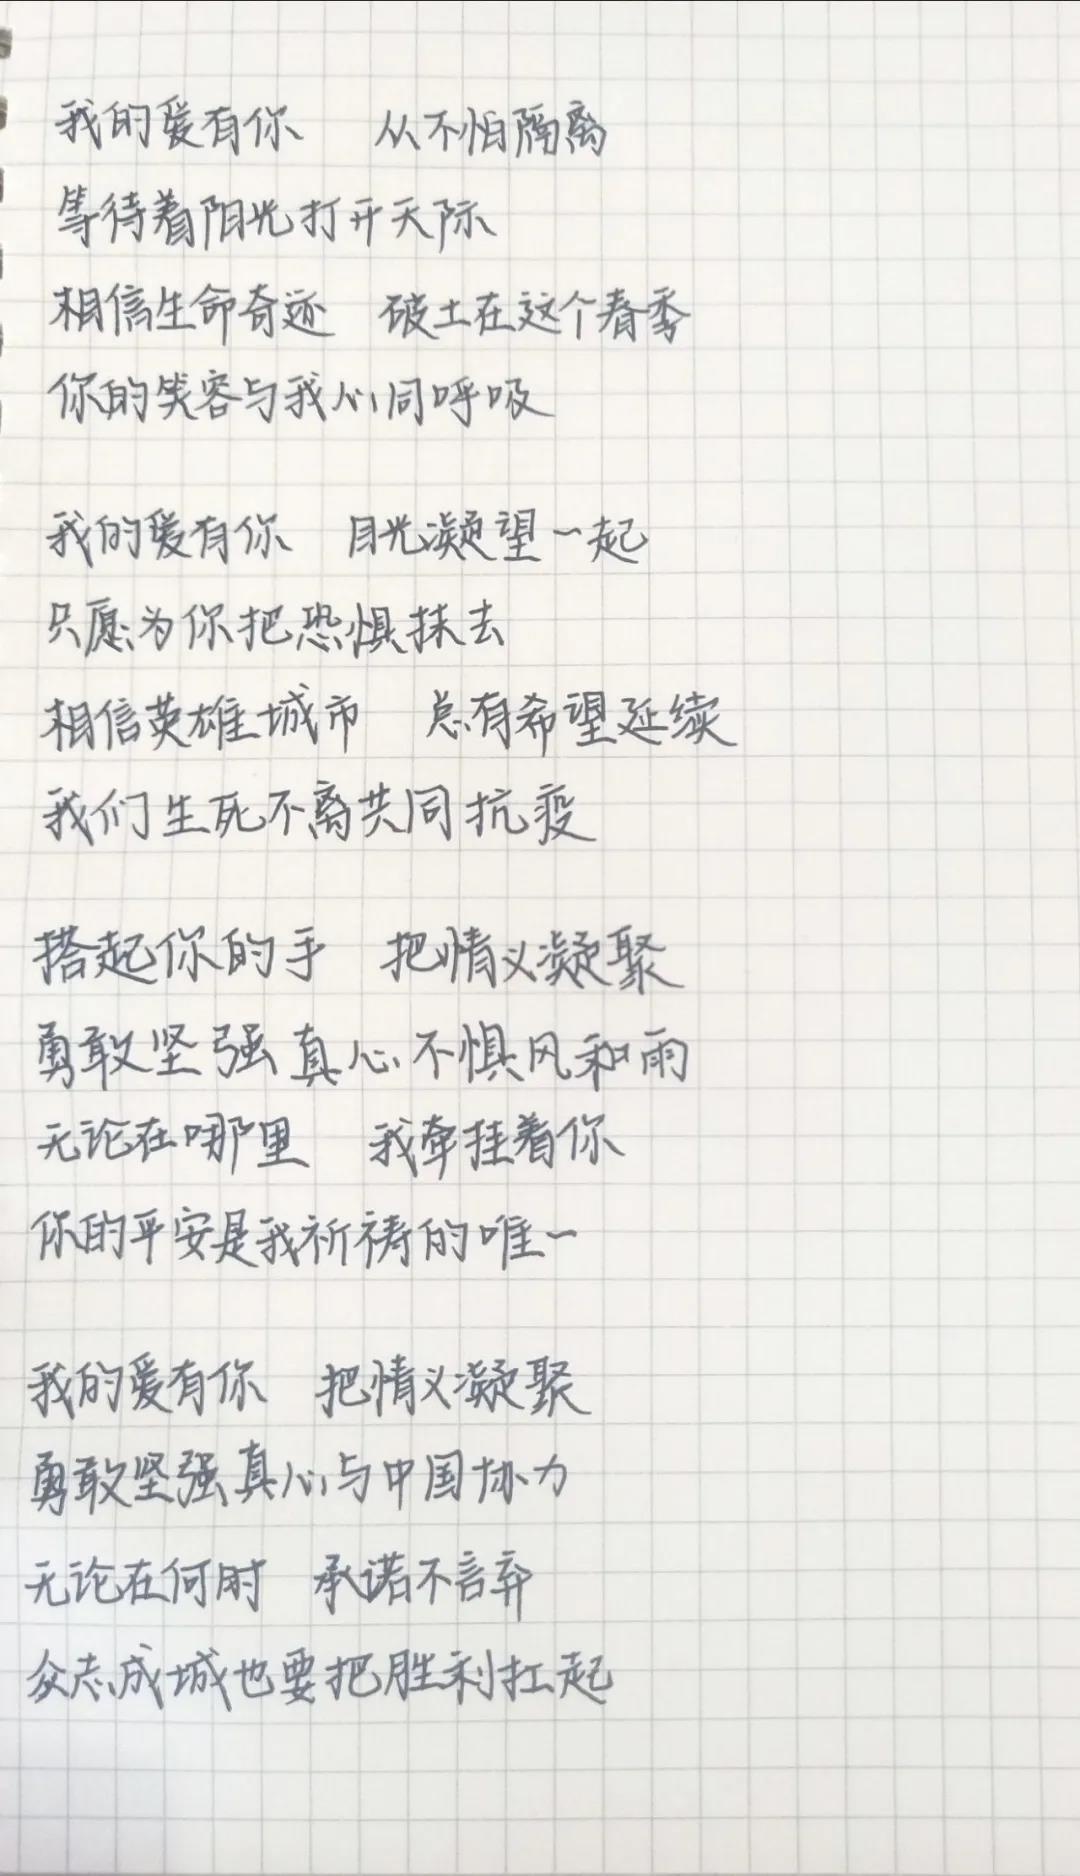 我的爱有你 从不怕隔离
等待着阳光打开天际
相信生命奇迹 破土在这个春季
你的笑容与我心同呼吸
我的爱有你 目光凝望一起
只愿为你把恐惧抹去
相信英雄城市 总有希望延续
我们生死不离共同抗疫
搭起你的手 把情义凝聚
勇敢坚强真心不惧风和雨
无论在哪里 我牵挂着你
你的平安是我祈祷的唯一
我的爱有你 把情义凝聚
勇敢坚强真心与中国协力
无论在何时 承诺不言弃
众志成城也要把胜利扛起